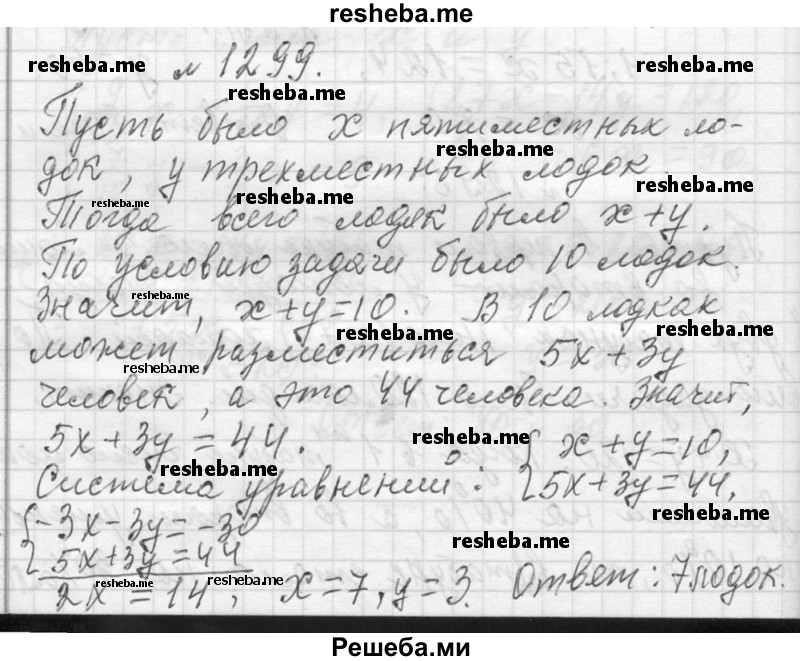 resheba.me
resheba.me № 1299. resheba.me
resheba.me
Пусть было x пятиместных ло-
resheba.me
док, y трехместных лодок
resheba.me resheba.me resheba.me
Тогда всего лодок было x+y.
По условию задачи было 10 лодок.
resheba.me
Значит, x+y=10. В 10 лодках
resheba.me resheba.me
может разместиться 5x+3y
resheba.me
человек, а это 44 человека. Значит,
5x+3y=44. resheba.me { x+y=10,
resheba.me
Система уравнений: { 5x+3y=44,
resheba.me
{ -3x-3y=-30
resheba.me
5x+3y=44
resheba.me resheba.me resheba.me
2x=14, x=7, y=3. Ответ: 7 лодок.
Решеба.ми